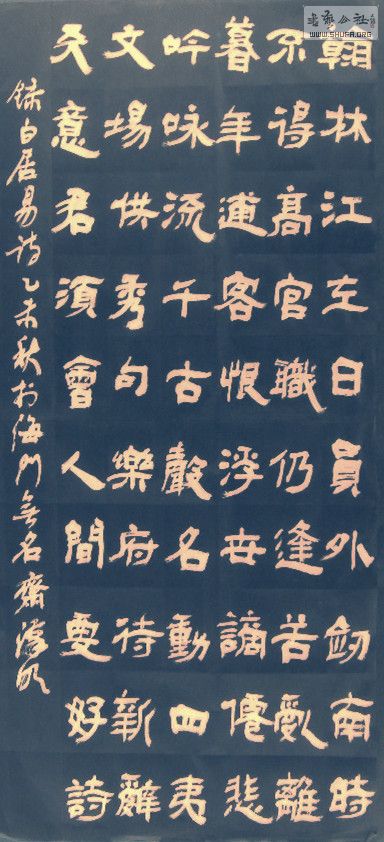 翰林江左日員外劒南時
不得髙官職仍逢苦亂離
暮年逋客恨浮世謫僊悲
吟咏流千古聲名動四夷
文場供秀句樂府待新辭
天意君須會人間要好詩
録白居易詩乙未秋於海門無名齋
書法公社
WWW.SHUFA.ORG